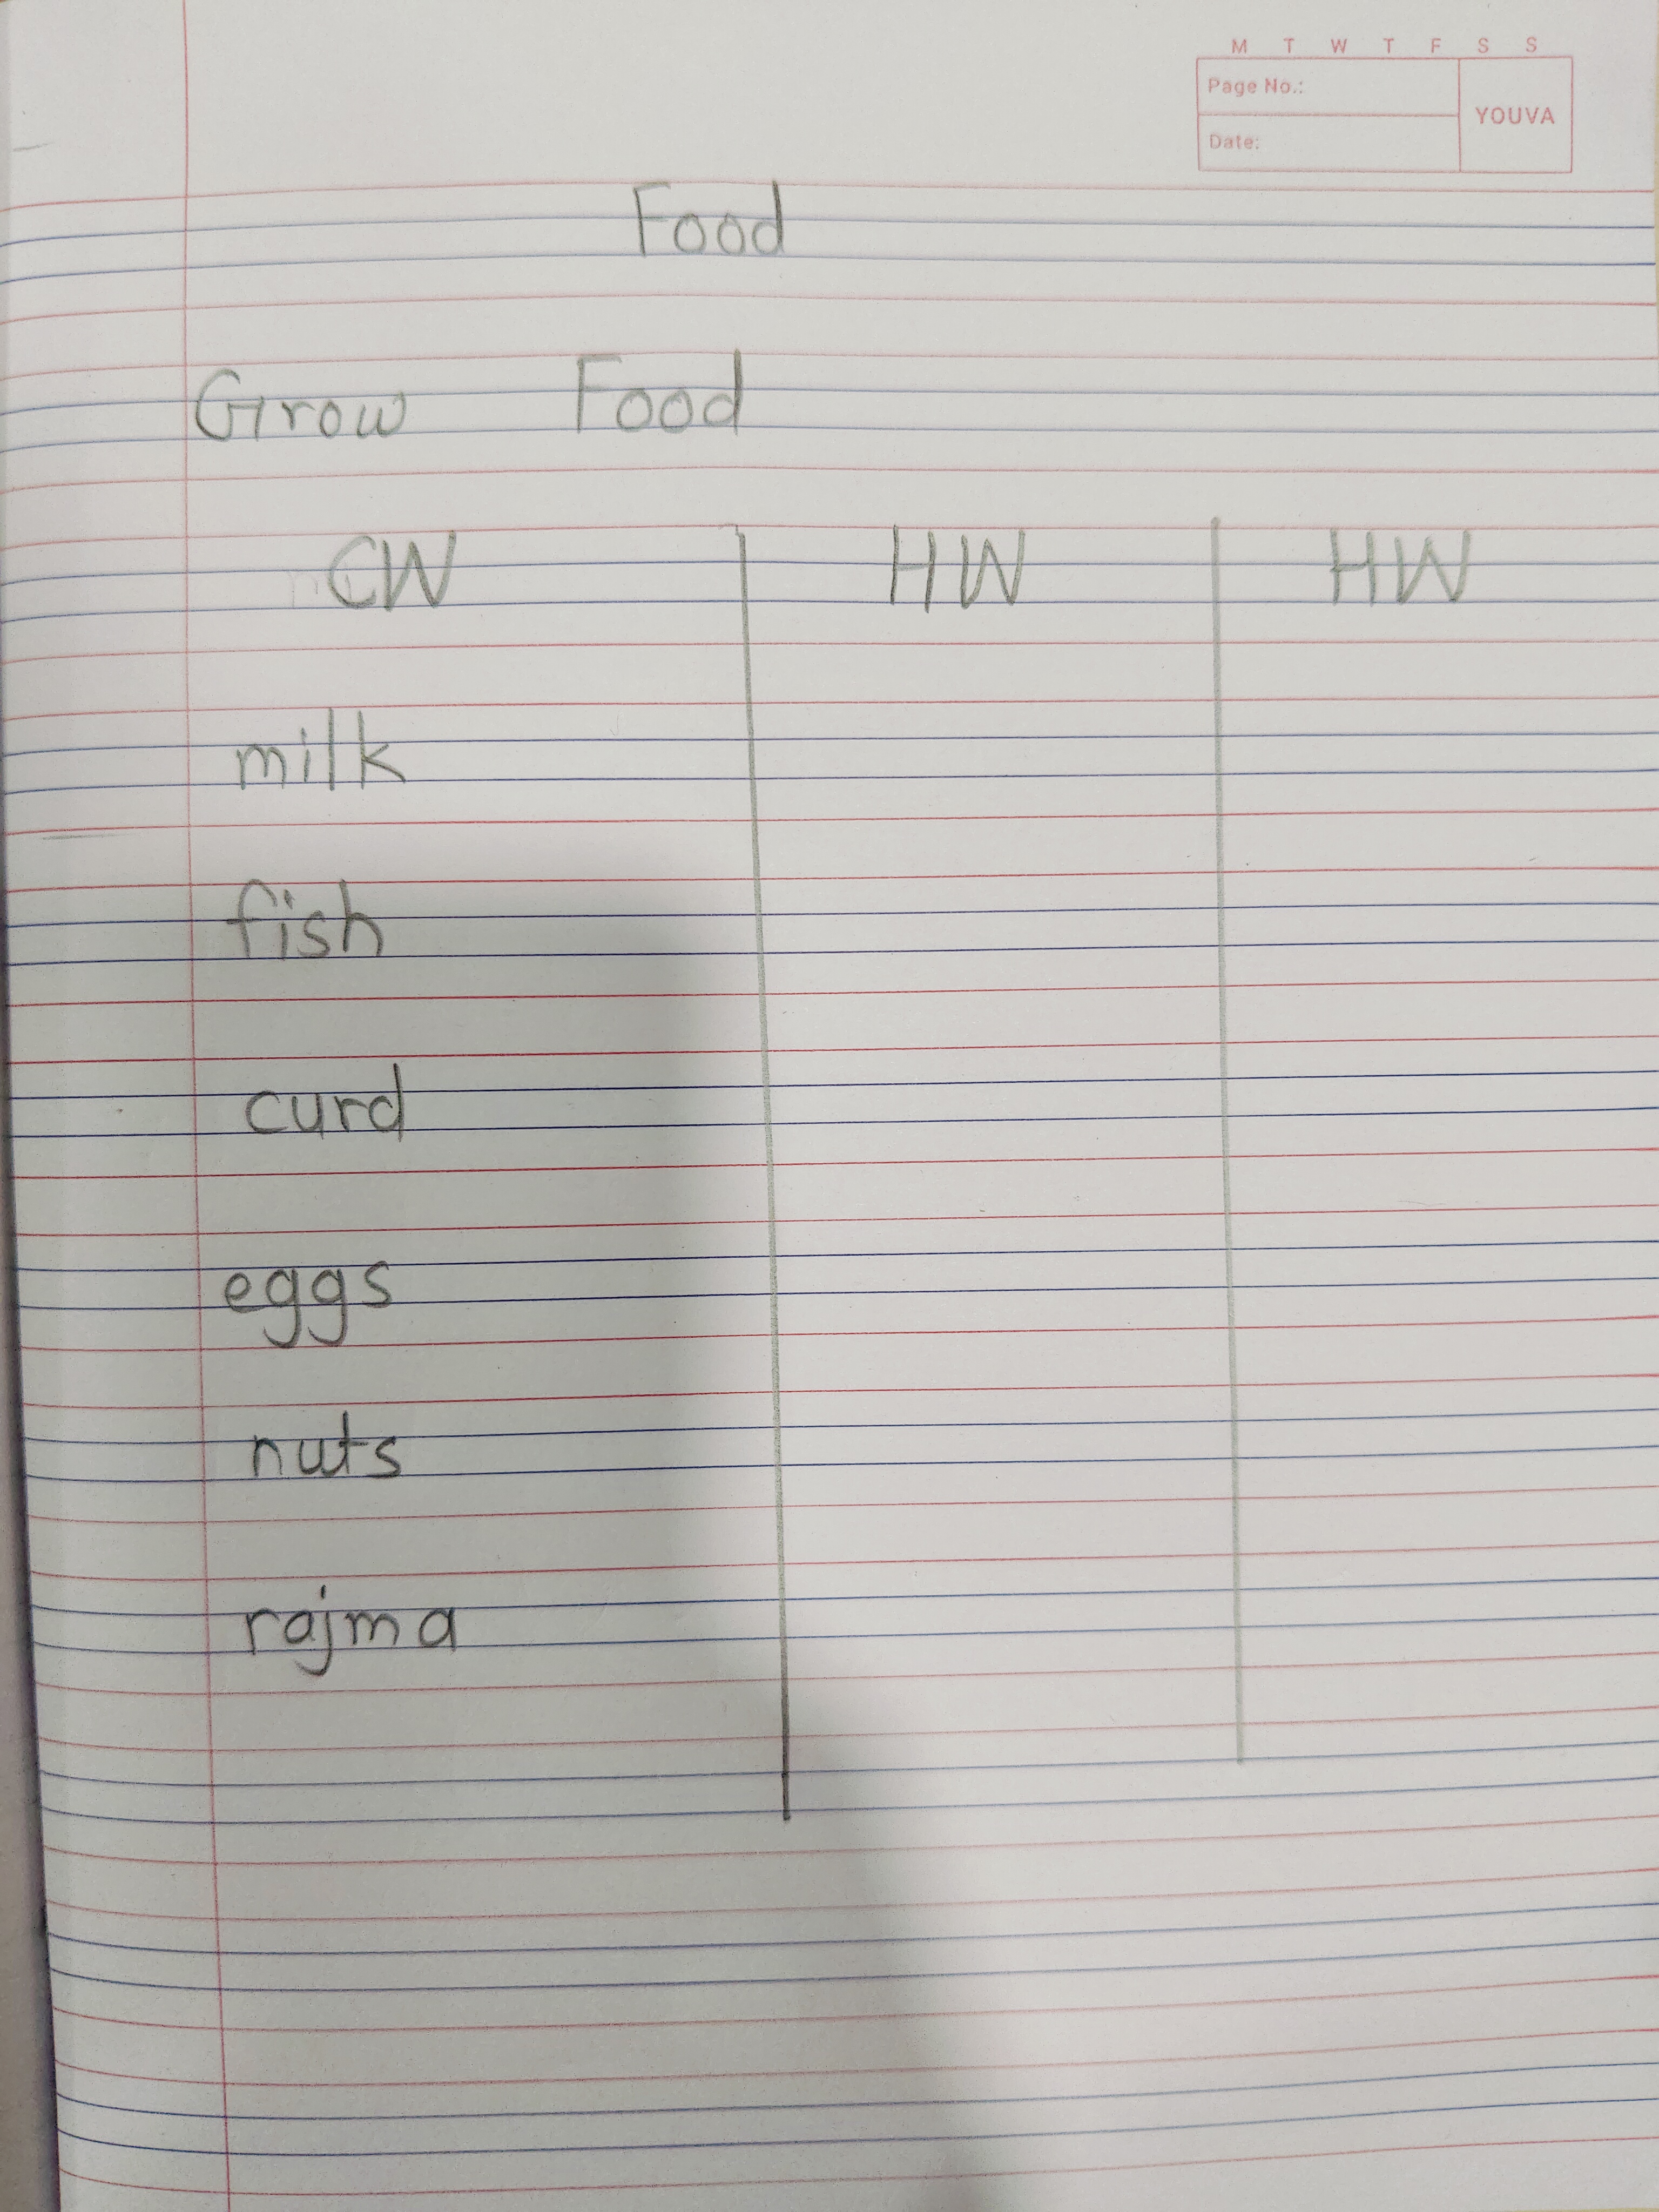 M T W T F S S
Page No.:
YOUVA
Date:
Food
Grow Food
CW HW HW
milk
fish
curd
eggs
nuts
rajma